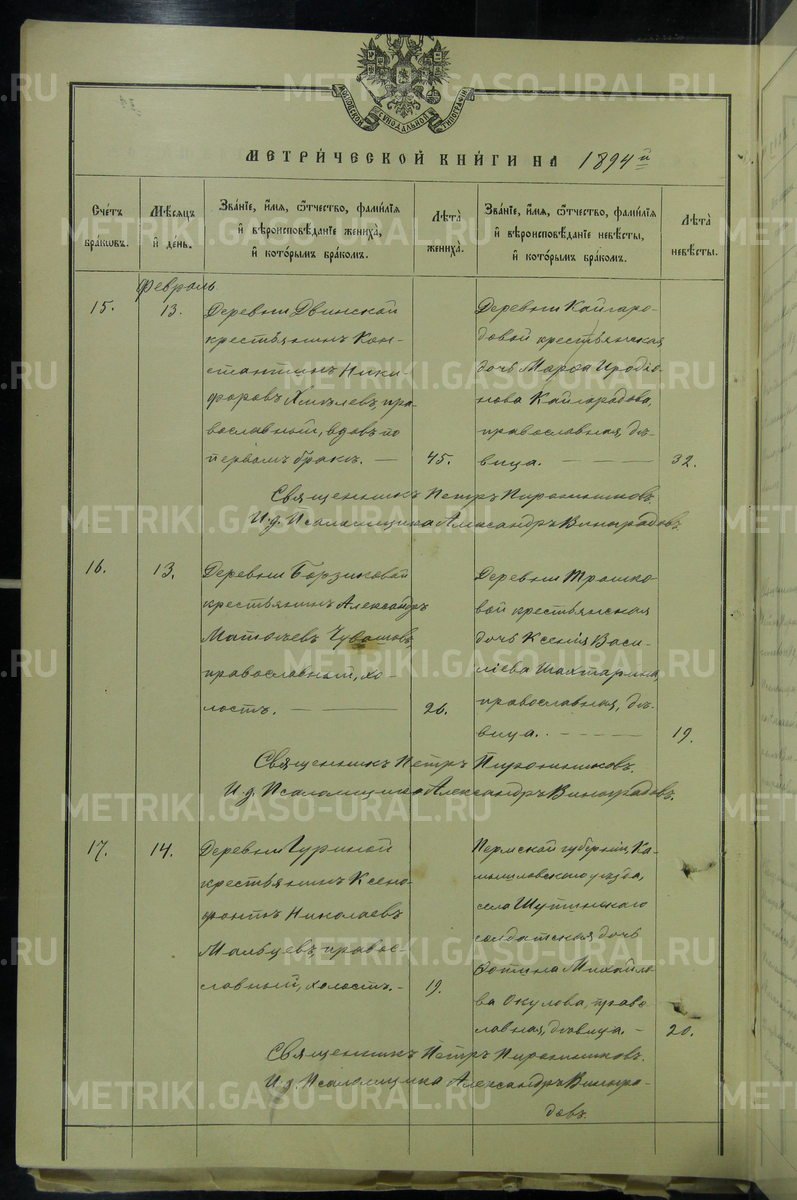 МОСКОВСКОЙ СѴНОДАЛЬНОЙ ТИПОГРАФІИ
МЕТРИ́ЧЕСКОЙ КНИ́ГИ НА 1894й
Сче́тъ
бра́кωвъ.
Мѣ́сяцъ
и҆ де́нь.
Зва́нїе, и҆́мѧ, ѻ҆́тчество, фами́лїѧ
и҆ вѣроисповѣ́данїе жениха̀,
и҆ кото́рымъ бра́комъ.
Лѣ́та
жениха̀.
Зва́нїе, и҆́мѧ, ѻ҆́тчество, фами́лїѧ
и҆ вѣроисповѣ́данїе невѣ́сты,
и҆ кото́рымъ бра́комъ.
Лѣ́та
невѣ́сты.
Февраль
15.
13.
Деревни Двинской
крестьянинъ Кон-
стантинъ Ники-
форовъ Хмѣлевъ, пра-
вославный, вдовъ по
первомъ бракѣ. —
45.
Деревни Кайгаро-
довой крестьянская
дочь Марѳа Иродіо-
нова Кайгародова,
православная, дѣ-
вица. —
32.
Священникъ Петръ Пиронишковъ
И.д. Псаломщика Александръ Виноградовъ
16.
13.
Деревни Борзиковой
крестьянинъ Александръ
Матѳіевъ Чувашовъ,
православный, хо-
лостъ. —
26.
Деревни Трошко-
вой крестьянская
дочь Ксенія Васи-
ліева Шахтарина,
православная, дѣ-
вица. —
19.
Священникъ Петръ Пиронишковъ.
И.д. Псаломщика Александръ Виноградовъ.
17.
14.
Деревни Гуриной
крестьянинъ Ксено-
фонтъ Николаевъ
Мальцевъ, правос-
лавный, холостъ. -
19.
Пермской губерніи, Ка-
мышловского уѣзда,
села Шутинскаго
солдатская дочь
Фотина Михайло-
ва Окулова, право-
славная, дѣвица. -
20.
Священникъ Петръ Пиронишковъ.
И.д. Псаломщика Александръ Виногра-
довъ.
METRIKI.GASO-URAL.RU